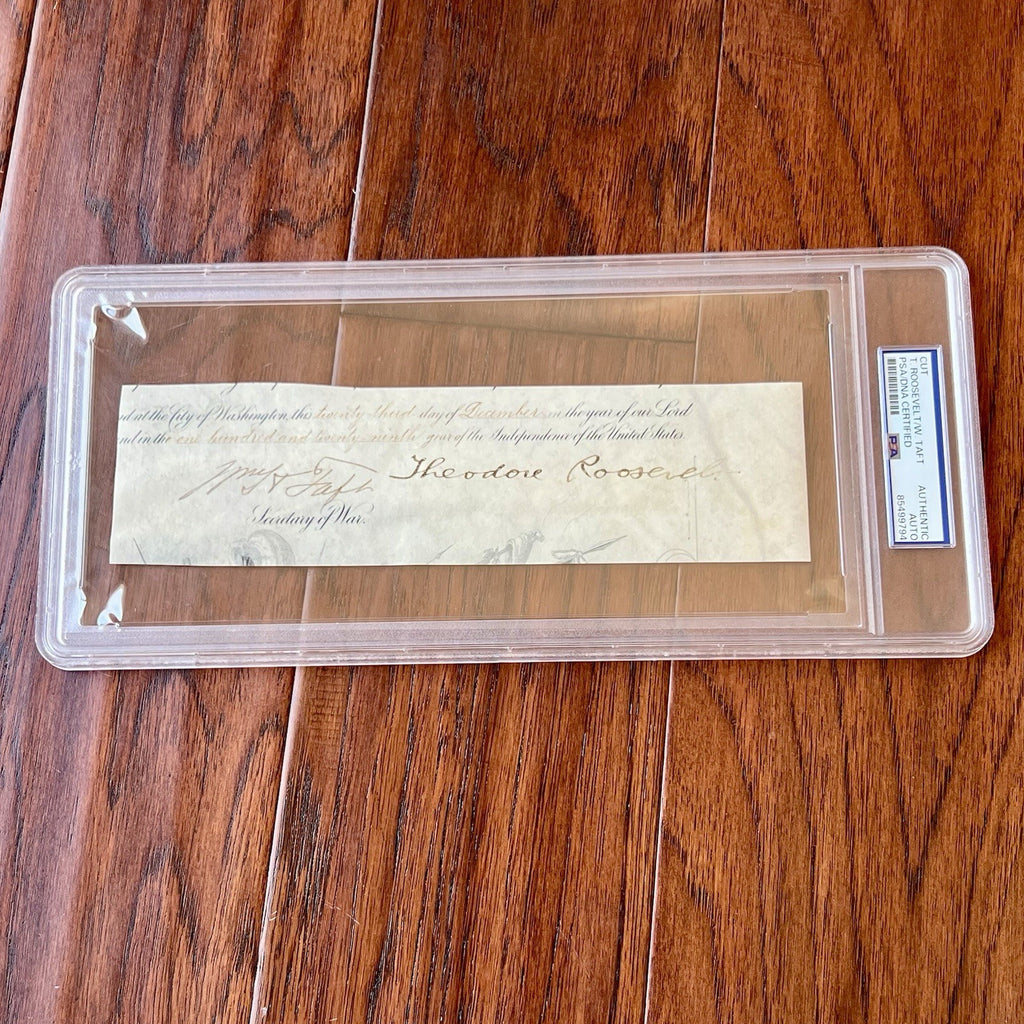 nd at the City of Washington, this twenty third day of December in the year of our Lord
nd in the one hundred and twenty ninth year of the Independence of the United States.
Wm H Taft Theodore Roosevelt
Secretary of War.
CUT AUTHENTIC
T. ROOSEVELT/W. TAFT AUTO
PSA/DNA CERTIFIED PSA 85499794